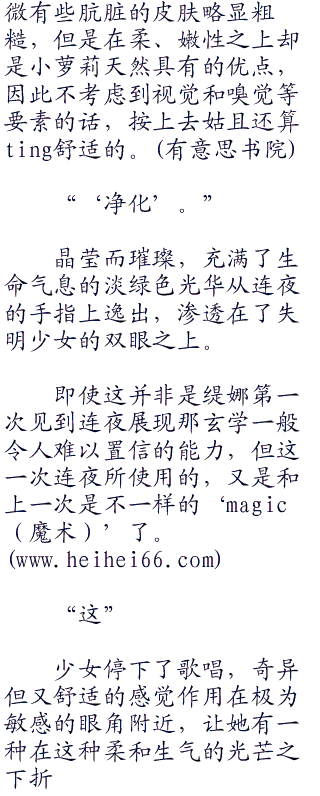 微有些肮脏的皮肤略显粗
糙，但是在柔、嫩性之上却
是小萝莉天然具有的优点，
因此不考虑到视觉和嗅觉等
要素的话，按上去姑且还算
ting舒适的。(有意思书院)
“‘净化’。”
晶莹而璀璨，充满了生
命气息的淡绿色光华从连夜
的手指上逸出，渗透在了失
明少女的双眼之上。
即使这并非是缇娜第一
次见到连夜展现那玄学一般
令人难以置信的能力，但这
一次连夜所使用的，又是和
上一次是不一样的‘magic
（魔术）’了。
(www.heihei66.com)
“这”
少女停下了歌唱，奇异
但又舒适的感觉作用在极为
敏感的眼角附近，让她有一
种在这种柔和生气的光芒之
下折